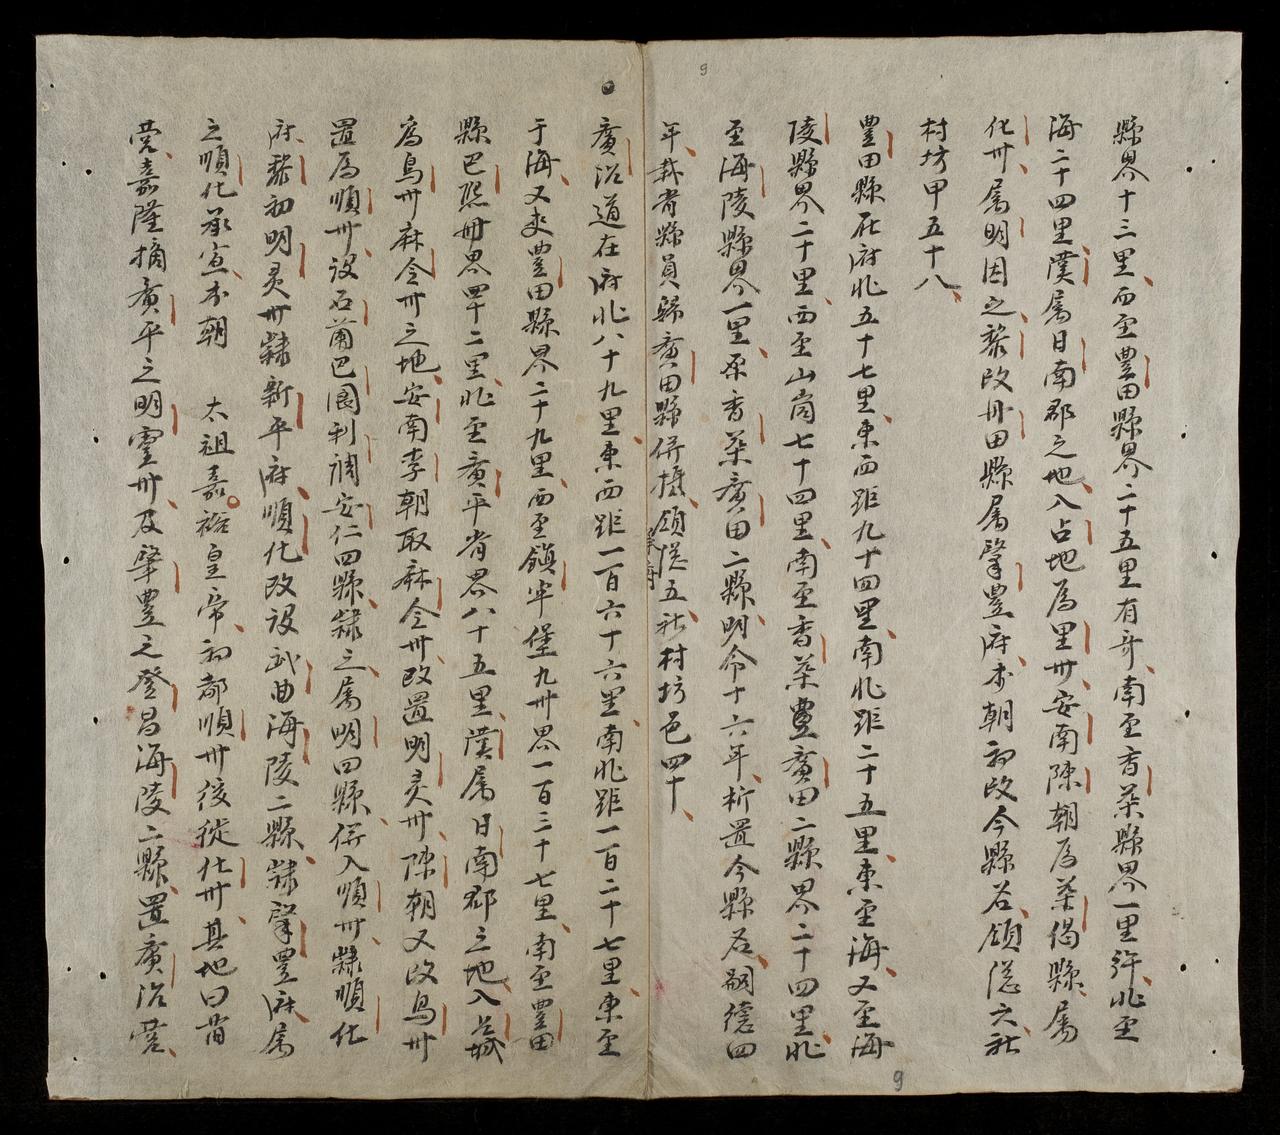 9
縣界十三里西至豊田縣界二十五里有奇南至香茶縣界一里許北至
海二十四里漢属日南郡之地入占地為里卅安南陳朝為茶偈縣属
化卅属明因之黎改丹田縣属肇豊府本朝初改今縣名領總六社
村坊甲五十八
豊田縣在府北五十七里東西距九十四里南北距二十五里東至海又至海
陵縣界二十里西至山崗七十四里南至香茶豊廣田二縣界二十四里北
至海陵縣界一里原香茶廣田二縣明命十六年析置今縣名嗣德四
年裁省縣員歸廣田縣併攝領總五社村坊邑四十
廣治道在府北八十九里東西距一百六十六里南北距一百二十七里東至
于海又夾豊田縣界二十九里西至鎮牢堡九卅界一百三十七里南至豊田
縣巴熙冊界四十二里北至廣平省界八十五里漢属日南郡之地入占城
為烏卅麻令卅之地安南李朝取麻令卅改置明灵卅陳朝又改烏卅
置為順卅設石蘭巴閬利調安仁四縣隸之属明四縣併入順卅隸順化
府黎初明灵卅隸新平府順化改設武曲海陵二縣隸肇豊府属
之順化承宣本朝 太祖嘉裕皇帝初都順卅後徙化卅其地曰舊
营嘉隆摘廣平之明靈卅及肇豊之登昌海陵二縣置廣治营
9